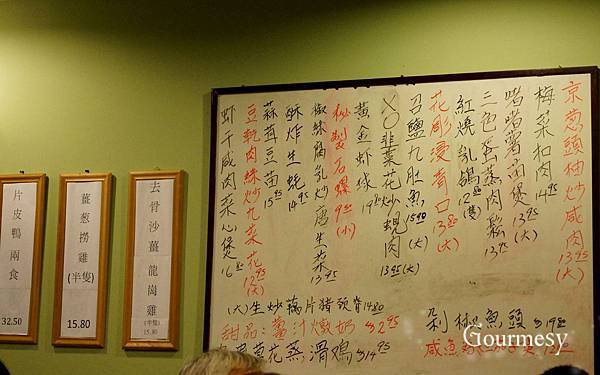 京葱頭抽炒咸肉 13.95 (大)
梅菜扣肉 14.95
啫啫薯苗煲 13.95
三色蛋蒸肉鬆 13.95
紅燒乳鴿 12.95 (隻)
花彫浸青口 13.80 (大)
召鹽九肚魚 15.90 (大)
XO韭菜花炒蜆肉 13.95 (大)
黃金蝦球 19.80
秘製石螺 9.95 (小)
椒絲腐乳炒唐生菜 13.95
酥炸生蚝 14.95
蒜茸豆苗 15.95
豆乾肉絲炒九菜花 12.95 (大)
蝦干咸肉菜心煲 16.80
去骨沙薑龍崗雞 (半隻) 15.80
薑葱撈雞 (半隻) 15.80
片皮鴨兩食 32.50
(大)生炒藕片豬頸脊 14.80
甜品:薑汁燉奶 $2.95
花蒸滑鳮 $14.95
剁椒魚頭 $19.80
咸魚
Gourmesy